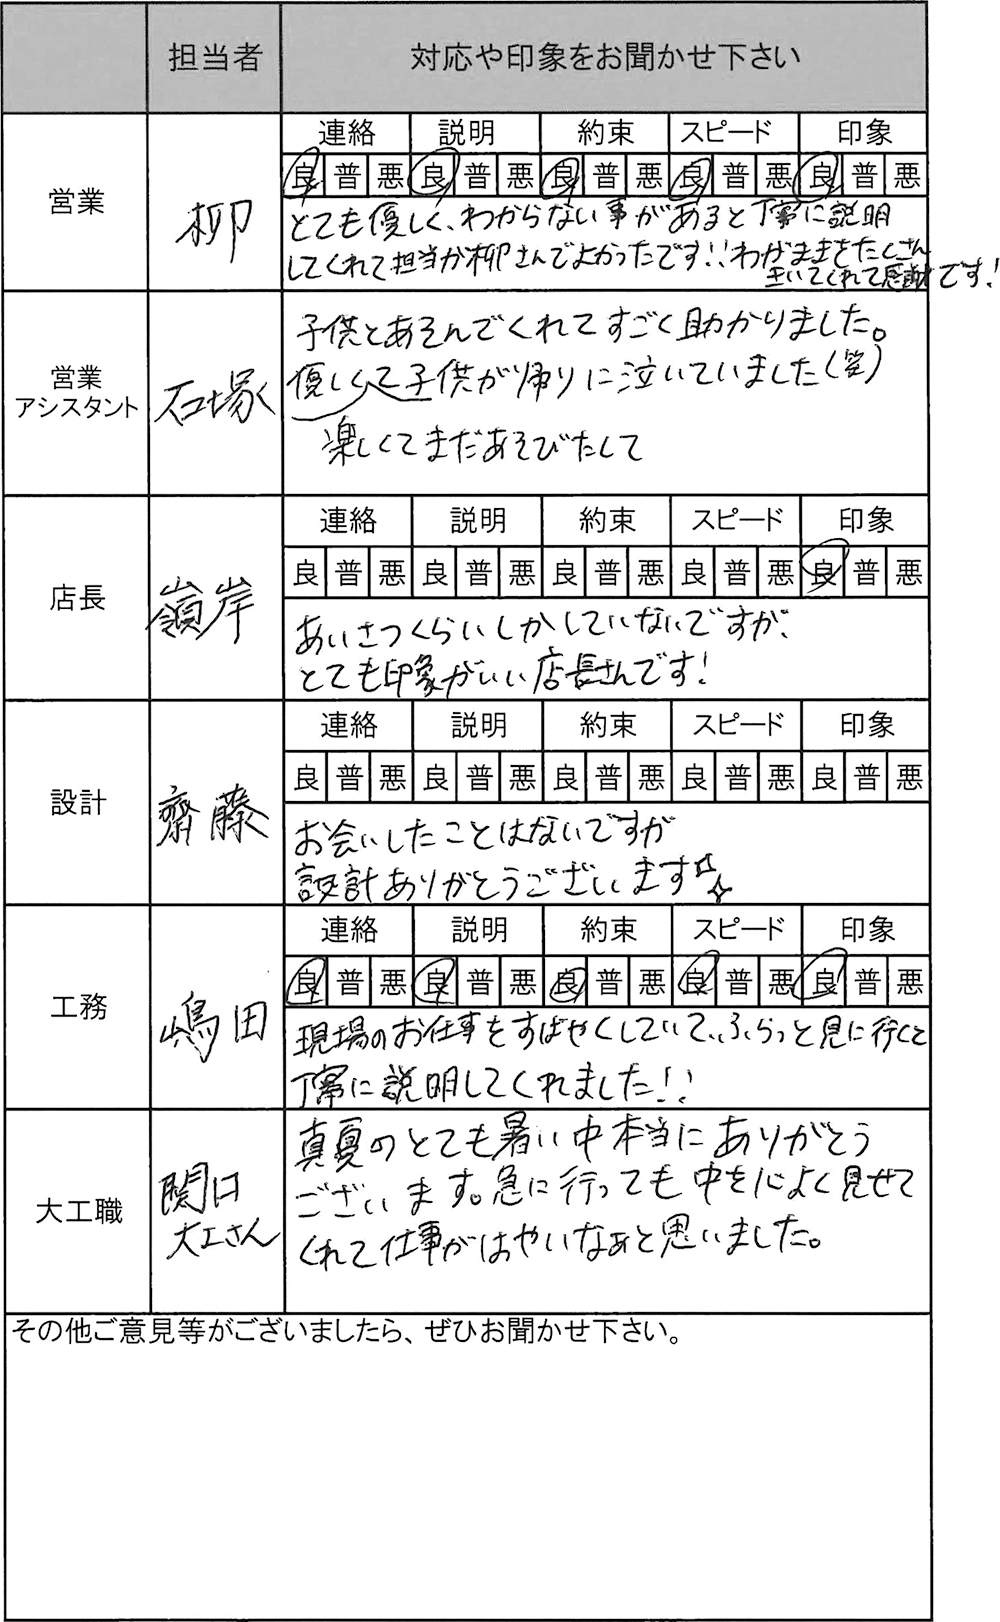 担当者 対応や印象をお聞かせ下さい
連絡 説明 約束 スピード 印象
良 普 悪 良 普 悪 良 普 悪 良 普 悪 良 普 悪
営業 柳
とても優しく、わからない事があると丁寧に説明
してくれて担当が柳さんでよかったです!!わがままをたくさん
きいてくれて感謝です!
営業
アシスタント
石塚
子供とあそんでくれてすごく助かりました。
優しくて子供が帰りに泣いていました(笑)
楽しくてまだあそびたくて
連絡 説明 約束 スピード 印象
良 普 悪 良 普 悪 良 普 悪 良 普 悪 良 普 悪
店長 嶺岸
あいさつくらいしかしていないですが、
とても印象がいい店長さんです!
連絡 説明 約束 スピード 印象
良 普 悪 良 普 悪 良 普 悪 良 普 悪 良 普 悪
設計 齋藤
お会いしたことはないですが
設計ありがとうございます
連絡 説明 約束 スピード 印象
良 普 悪 良 普 悪 良 普 悪 良 普 悪 良 普 悪
工務 嶋田
現場のお仕事をすばやくしていて、ふらっと見に行くと
丁寧に説明してくれました!!
大工職
関口
大工さん
真夏のとても暑い中本当にありがとう
ございます。急に行っても中を心よく見せて
くれて仕事がはやいなぁと思いました。
その他ご意見等がございましたら、ぜひお聞かせ下さい。